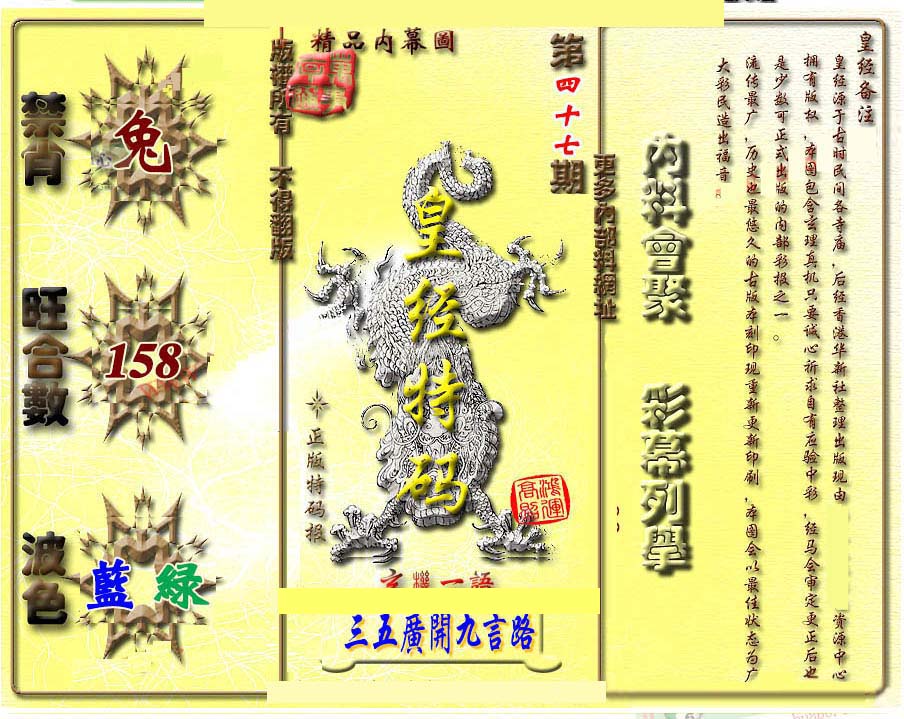 精品內幕圖
第四十七期
版權所有 不得翻版
更多內部料網址
皇经特码
正版特码报
鴻運高照
玄機一語
三五廣開九言路
禁肖
兔
旺合數
158
波色
藍 綠
內料會聚
彩幕列擧
皇经备注
皇经源于古时民间各寺庙，后经香港华新社整理出版现由
资源中心
拥有版权，本图包含玄理真机只要诚心祈求自有应验中彩，经马会审定更正后也
是少数可正式出版的内部彩报之一。
流传最广，历史也最悠久的古版本刻印现重新更新印刷，本图会以最佳状态为广
大彩民造出福音